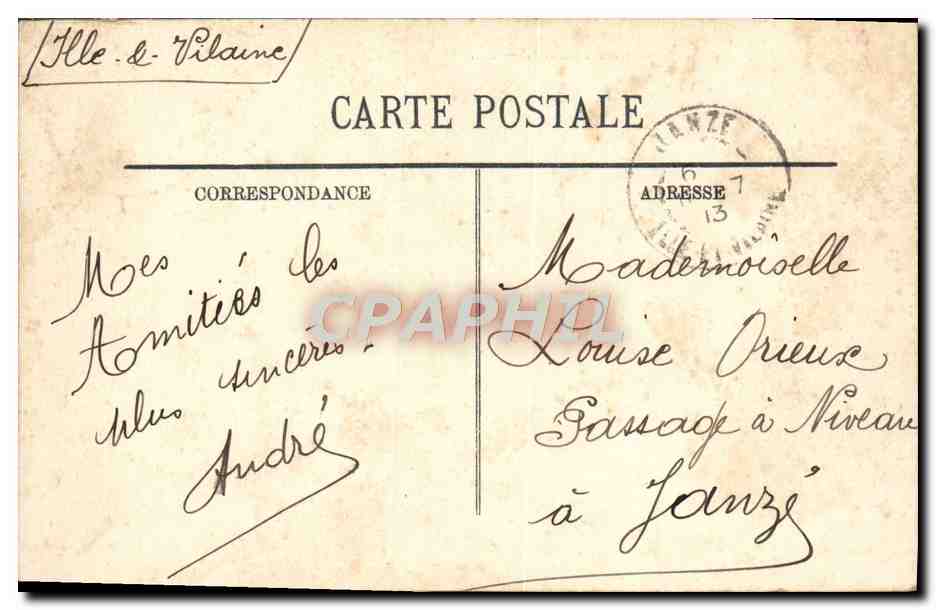 Ille-&-Vilaine
CARTE POSTALE
JANZÉ
6
7
13
ILLE ET VILAINE
CORRESPONDANCE
ADRESSE
Mes
Amitiés les
plus sincères.
André
Mademoiselle
Louise Orieux
Passage à Niveau
à Janzé
CPAPHIL